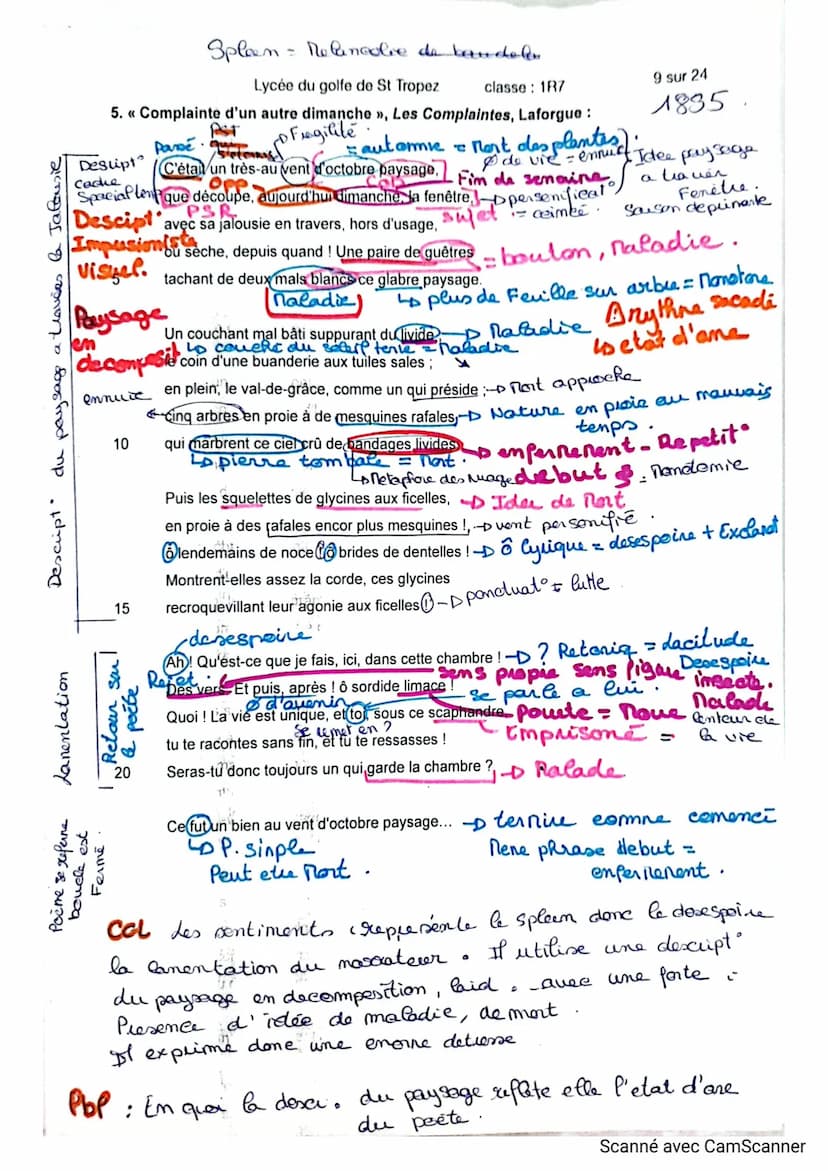 Spleen = Melancolie de
Lycée du golfe de St Tropez classe : 1R7 9 sur 24
1835.
5. « Complainte d'un autre dimanche », Les Complaintes, Laforgue :
Passé Fragilité = automne = Mort des plantes
Ø de vie = ennui Idée paysage
Descript° C'était un très-au vent d'octobre paysage, Fin de semaine à traver
Cadre OPP COD Fenêtre.
Spacial temp que découpe, aujourd'hui dimanche, la fenêtre, personificat° Saison déprimante
Descript° PSR sujet
avec sa jalousie en travers, hors d'usage,
Impressionista où sèche, depuis quand ! Une paire de guêtres = bouton, Maladie.
Visuel. tachant de deux mals blancs ce glabre paysage.
Maladie plus de Feuille sur arbre = Monotone
Paysage en decomposit° Un couchant mal bâti suppurant du livide Maladie Arythme sacadé
couché du soleil terne = Maladie état d'ame
le coin d'une buanderie aux tuiles sales ;
ennuie en plein, le val-de-grâce, comme un qui préside ; Mort approche
cinq arbres en proie à de mesquines rafales, Nature en proie au mauvais temps.
10 qui marbrent ce ciel crû de bandages livides enfermement - Repetit°
pierre tombale = Mort.
Metaphore des nuage debut = Monotomie
Puis les squelettes de glycines aux ficelles, Idée de Mort
en proie à des rafales encor plus mesquines !, vent personifié.
ô lendemains de noce ! ô brides de dentelles ! ô lyrique = desespoire + Exclamat°
Montrent-elles assez la corde, ces glycines
15 recroquevillant leur agonie aux ficelles ! ponctuat° = lutte
Descript° du paysage a travers la Jalousie
desespoire
Ah ! Qu'ést-ce que je fais, ici, dans cette chambre ! ? Retoriq = lacitude
Rejet. sens propre sens figuré Desespoire insecte.
Des vers. Et puis, après ! ô sordide limace ! se parle a lui.
Ø d'avenir Malade
Quoi ! La vie est unique, et toi, sous ce scaphandre, lenteur de la vie
Emprisoné =
tu te racontes sans fin, et tu te ressasses !
20 Seras-tu donc toujours un qui garde la chambre ? Malade
Lamentation
Retour sur le poéte
Ce fut un bien au vent d'octobre paysage... termine comme comencé
P. simple Meme phrase debut =
Peut etre Mort. enfermement.
Poème se referme boucle est Fermé.
CCL des sentiments représente le spleen donc le desespoire
la lamentation du narrateur. Il utilise une descript°
du paysage en decomposition, laid. avec une forte
Presence d'idée de maladie, de mort.
Il exprime donc une enorme detresse
Pbp : En quoi la descr. du paysage reflète elle l'etat d'ame
du poète.
Scanné avec CamScanner